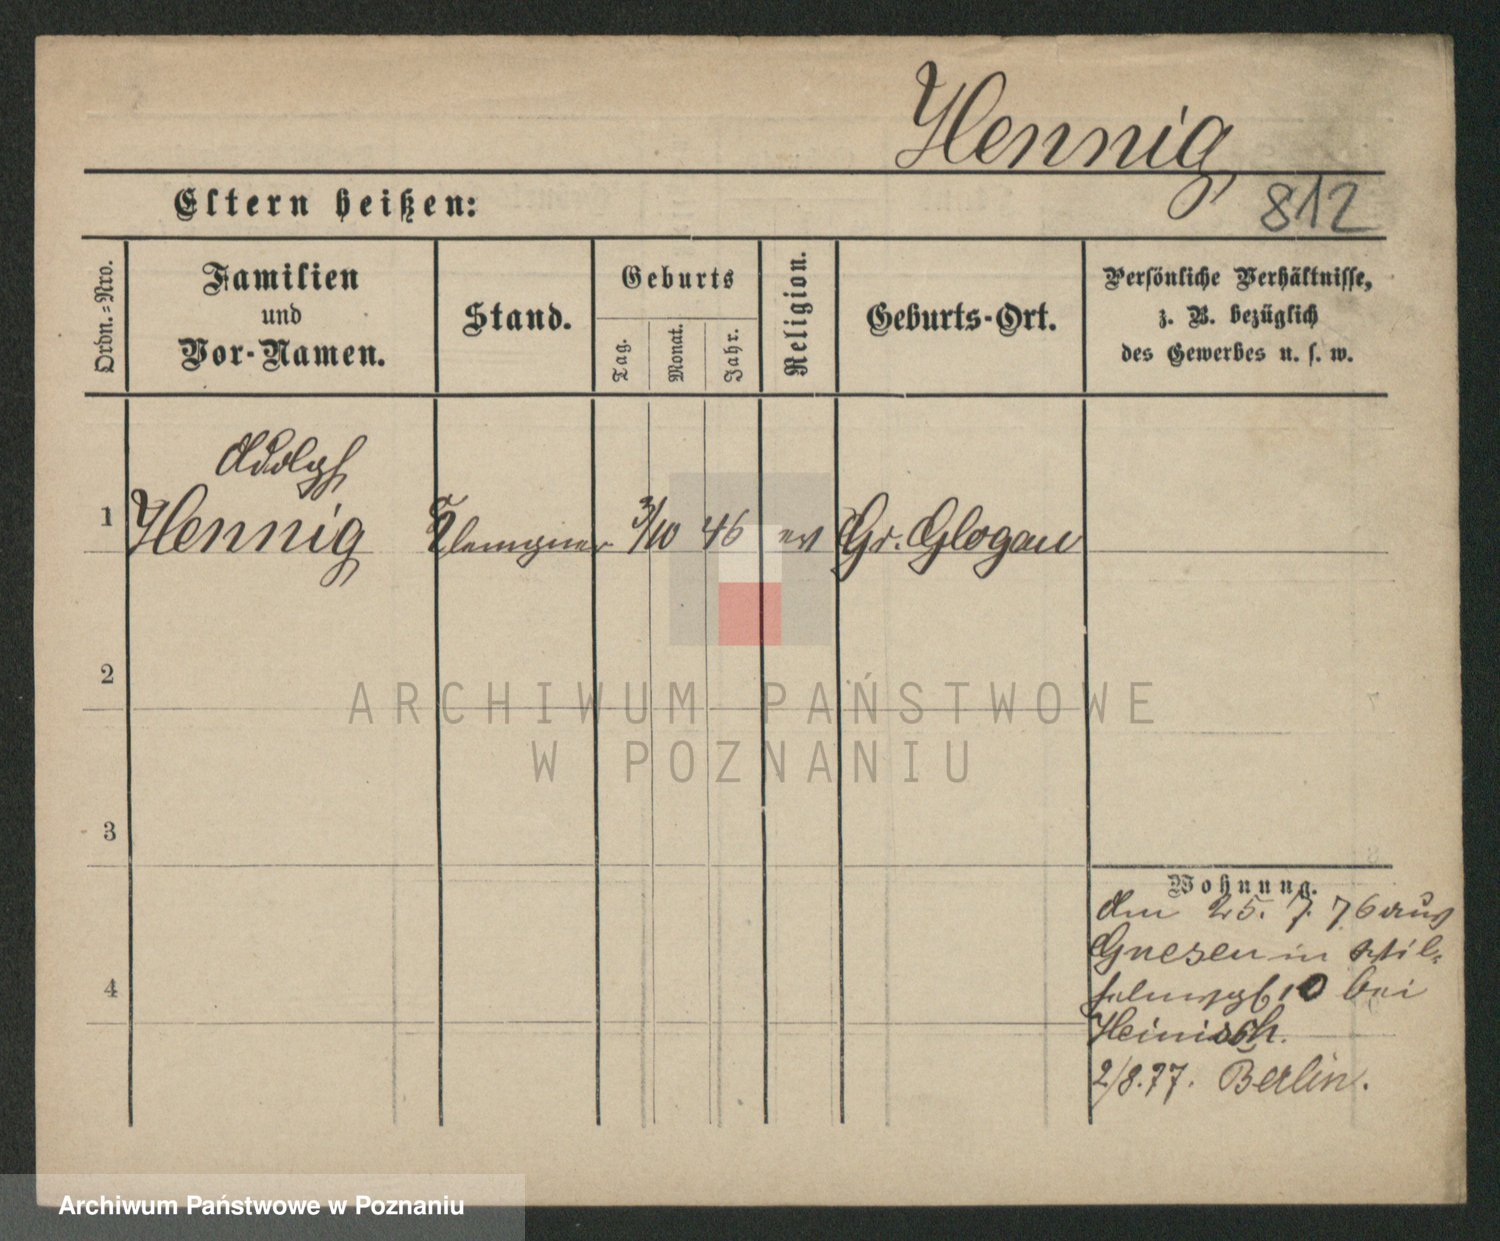 Hennig
812
Eltern heißen:
Ordn.=Nro.
Familien
und
Vor-Namen.
Stand.
Geburts
Tag.
Monat.
Jahr.
Religion.
Geburts-Ort.
Persönliche Verhältnisse,
z. B. bezüglich
des Gewerbes u. s. w.
Adolph
1 Hennig Klempner 3/10 46 ev Gr. Glogau
2
ARCHIWUM PAŃSTWOWE
W POZNANIU
3
Wohnung.
den 25. 7. 76 aus
Gnesen in Wil-
helmspl 10 bei
4
Heinisch.
2/8.77. Berlin.
Archiwum Państwowe w Poznaniu